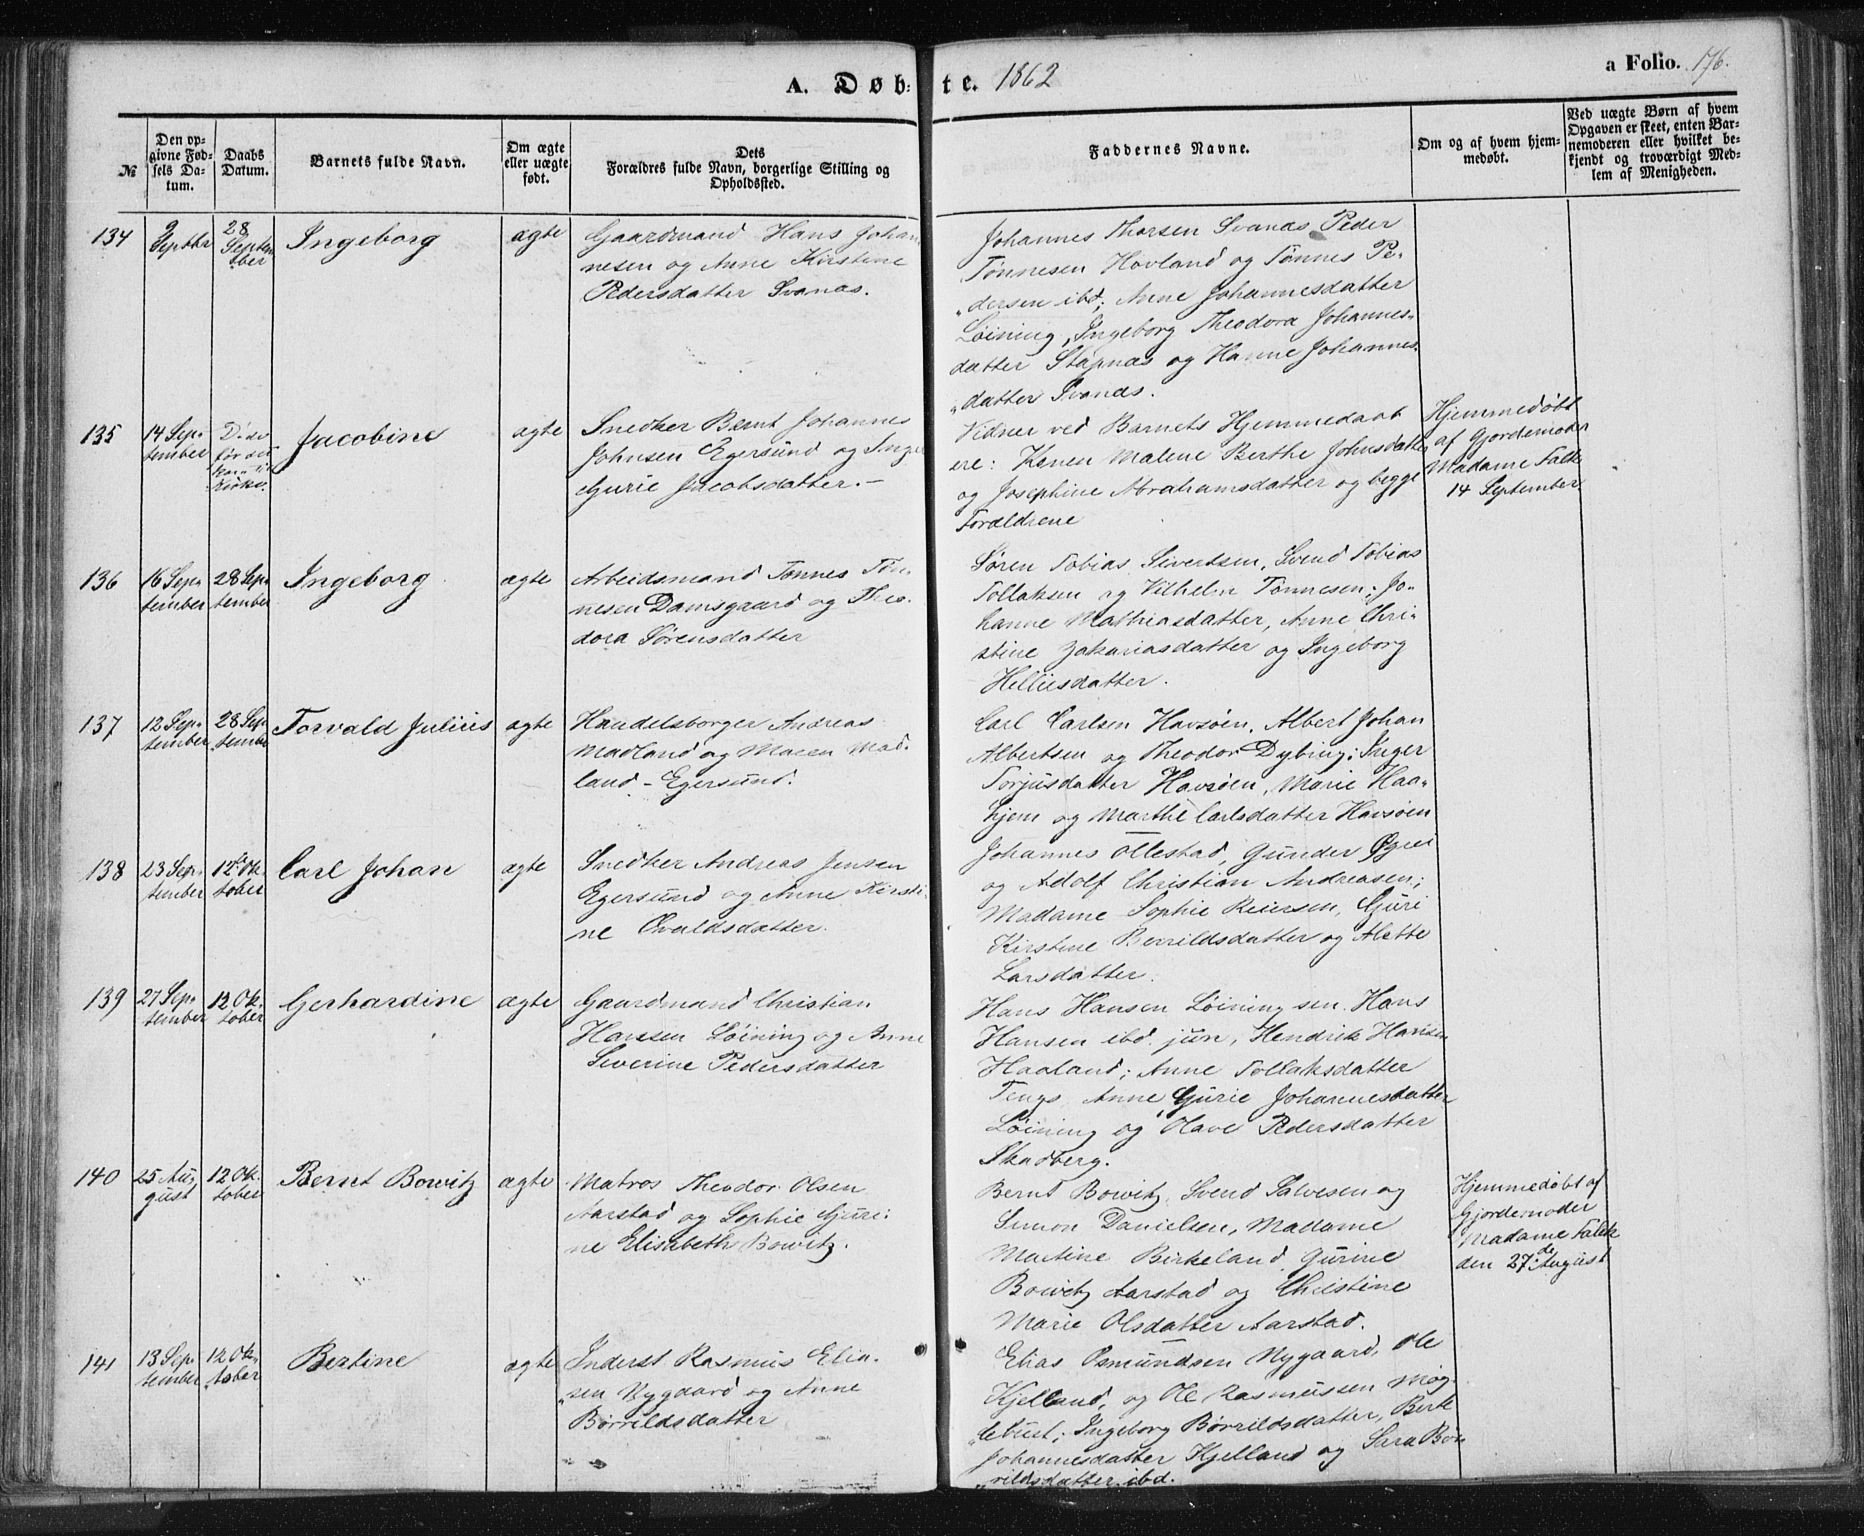 A. Døb-
te. 1862
a Folio. 176.
№
Den op-
givne Fød-
sels Da-
tum.
Daabs
Datum.
Barnets fulde Navn.
Om ægte
eller uægte
født.
Dets
Forældres fulde Navn, borgerlige Stilling og
Opholdssted.
Faddernes Navne.
Om og af hvem hjem-
medøbt.
Ved uægte Børn af hvem
Opgaven er skeet, enten Bar-
nemoderen eller hvilket be-
kjendt og troværdigt Med-
lem af Menigheden.
134
9
Septbr
28
Septem
ber
Ingeborg
ægte
Gaardmand Hans Johan
nesen og Anne Kirstine
Pedersdatter Svanæs.
Johannes Thorsen Svanæs Peder
Tønnesen Hovland og Tønnes Pe-
dersen ibd; Anne Johannesdatter
Løining, Ingeborg Theodora Johannes-
datter Stapnæs og Hanne Johannes-
datter Svanæs.
135
14 Sep-
tember
Døde
før det
kom til
Kirke.
Jacobine
ægte
Snedker Bernt Johannes
Johnsen Egersund og Inger
Gurie Jacobsdatter.-
Vidner ved Barnets Hjemmedaab
ere: Konen Malene Berthe Johnsdatter
og Josephine Abrahamsdatter og begge
Forældrene
Hjemmedøbt
af Gjordemoder
Madame Falk
14 September.
136
16 Sep-
tember
28 Sep-
tember
Ingeborg
ægte
Arbeidsmand Tønnes Tøn-
nesen Damsgaard og Theo-
dora Sørensdatter
Søren Tobias Sivertsen, Svend Tobias
Tollaksen og Vilhelm Tønnesen; Jo-
hanne Mathiasdatter, Anne Chri-
stine Zakariasdatter og Ingeborg
Helliesdatter.
137
12 Sep-
tember
28 Sep-
tember
Torvald Julius
ægte
Handelsborger Andreas
Madland og Maren Mad-
land - Egersund.
Carl Carlsen Havsøen, Albert Johan
Albertsen og Theodor Dybing; Inger
Torjusdatter Havsøen, Marie Haa-
hjem og Marthe Carlsdatter Havsøen
138
23 Sep-
tember
12te Ok
tober
Carl Johan
ægte
Snedker Andreas Jensen
Egersund og Anne Kirsti-
ne Ovaldsdatter.
Johannes Ollestad, Gunder Øgrei
og Adolf Christian Andreasen;
Madame Sophie Reiersen, Guri
Kirstine Berrildsdatter og Alette
Larsdatter.
139
27 Sep-
tember
12 Ok-
tober
Gerhardine
ægte
Gaardmand Christian
Hansen Løining og Anne
Severine Pedersdatter
Hans Hansen Løining sen. Hans
Hansen ibd. jun, Hendrik Hansen
Haaland; Anne Tollaksdatter
Tengs, Anne Gurie Johannesdatter
Løining og Olave Pedersdatter
Skadberg.
140
25 Au-
gust
12 Ok-
tober
Bernt Bowitz
ægte
Matros Theodor Olsen
Aarstad og Sophie Guri-
ne Elisabeth Bowitz.
Bernt Bowitz, Svend Salvesen og
Simon Danielsen, Madame
Martine Birkeland, Gurine
Bowitz Aarstad og Christine
Marie Olsdatter Aarstad.
Hjemmedøbt af
Gjordemoder
Madame Falck
den 27de August
141
13 Sep-
tember
12 Ok-
tober
Bertine
ægte
Inderst Rasmus Elia-
sen Nygaard og Anne
Børrildsdatter
Elias Osmundsen Nygaard, Ole
Kjelland, og Ole Rasmussen Møg-
lebust; Ingeborg Børrildsdatter, Berte
Johannesdatter Kjelland og Sara Bør-
rildsdatter ibd.